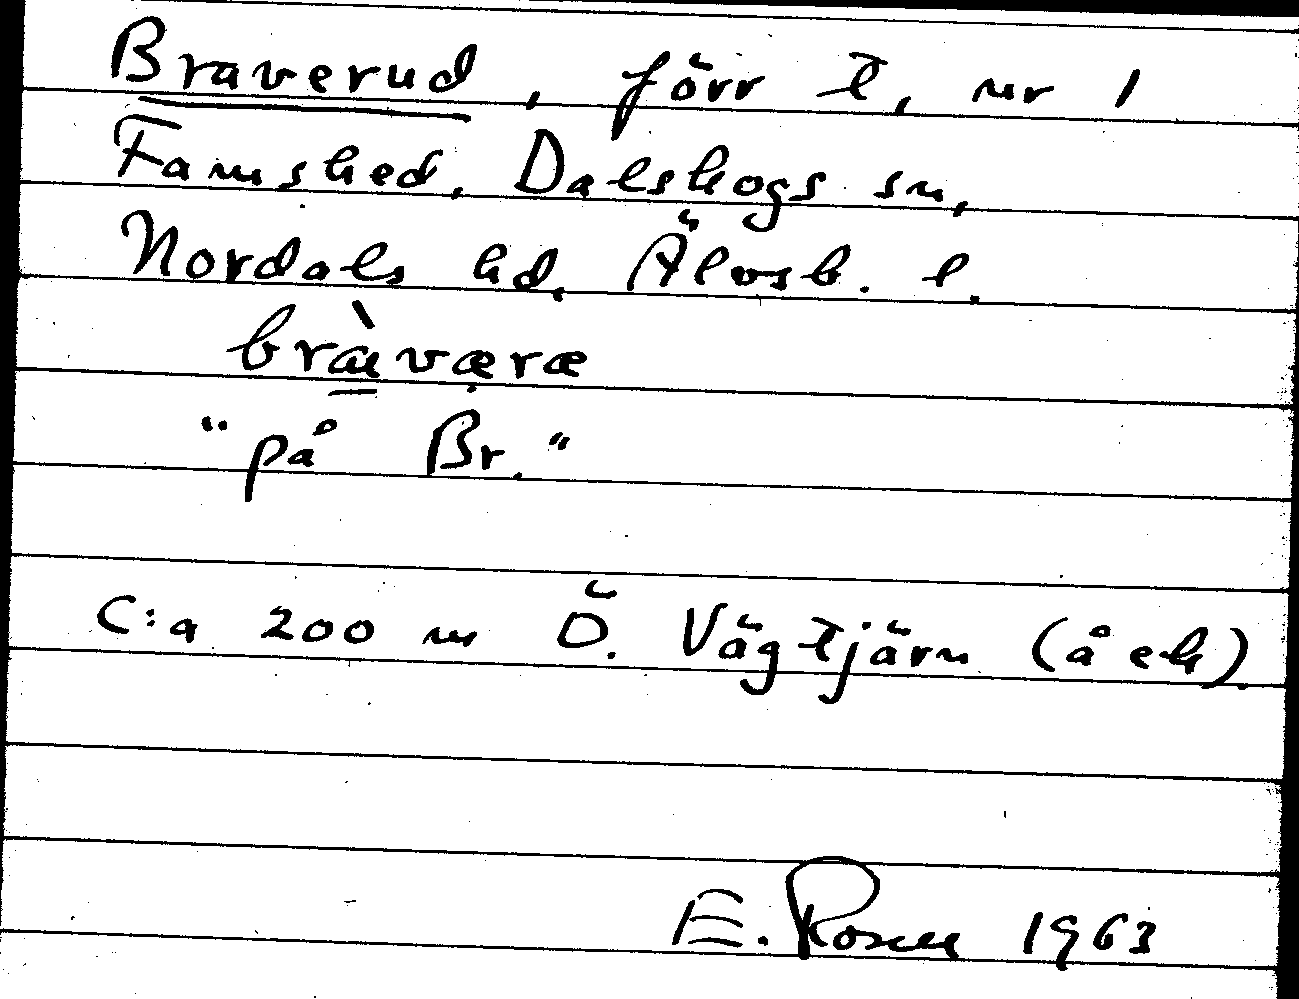 Braverud, förr t, nr 1
Famshed, Dalskogs sn,
Nordals hd, Älvsb. l.
bràværæ
"på Br."
C:a 200 m Ö. Vägtjärn (å ek).
E. Rosell 1963